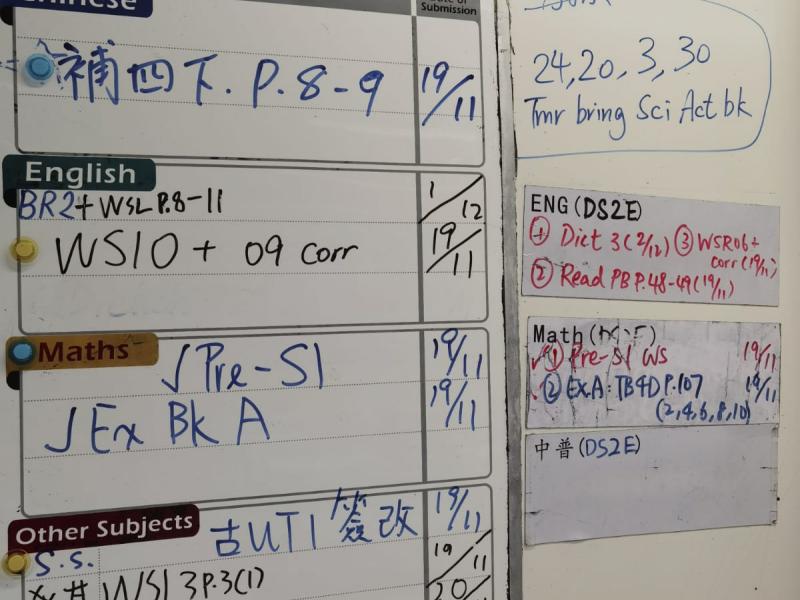 Chinese
Date of
Submission
補四下. P. 8-9 19/11
English
BR2 + WSL P.8-11 1/12
WS10 + 09 corr 19/11
Maths
√ Pre-S1 19/11
√ Ex Bk A 19/11
Other Subjects
古UT1 簽改 19/11
S.S. 19/11
WS1 3P.3(1) 20/
24, 20, 3, 30
Tmr bring Sci Act bk
ENG (DS2E)
① Dict 3 (2/12) ③ WSR06 +
corr (19/11)
② Read PB P.48-49 (19/11)
Math
√① Pre-S1 WS 19/11
② Ex.A: TB4D P.107 19/11
(2,4,6,8,10)
中普 (DS2E)